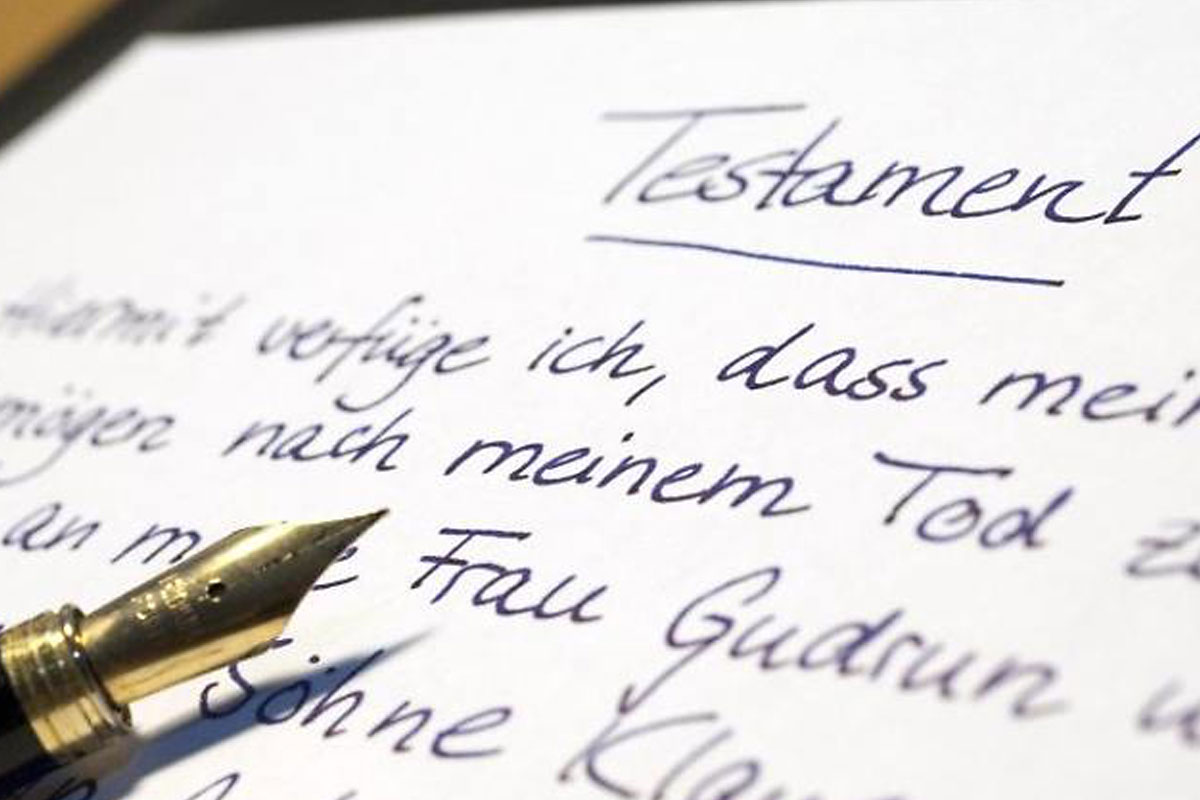 Testament
Hiermit verfüge ich, dass mein
mögen nach meinem Tod
an Frau Gudrun
Söhne Klau